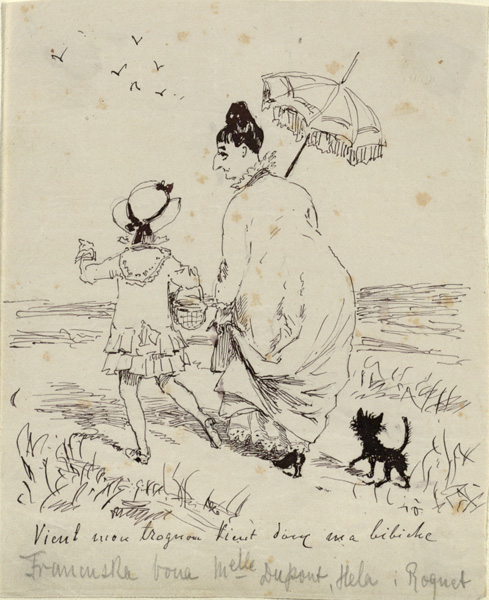 Vient mon trognon Vient donc ma bibiche
Francuska bona Melle Dupont, Hela i Roquet